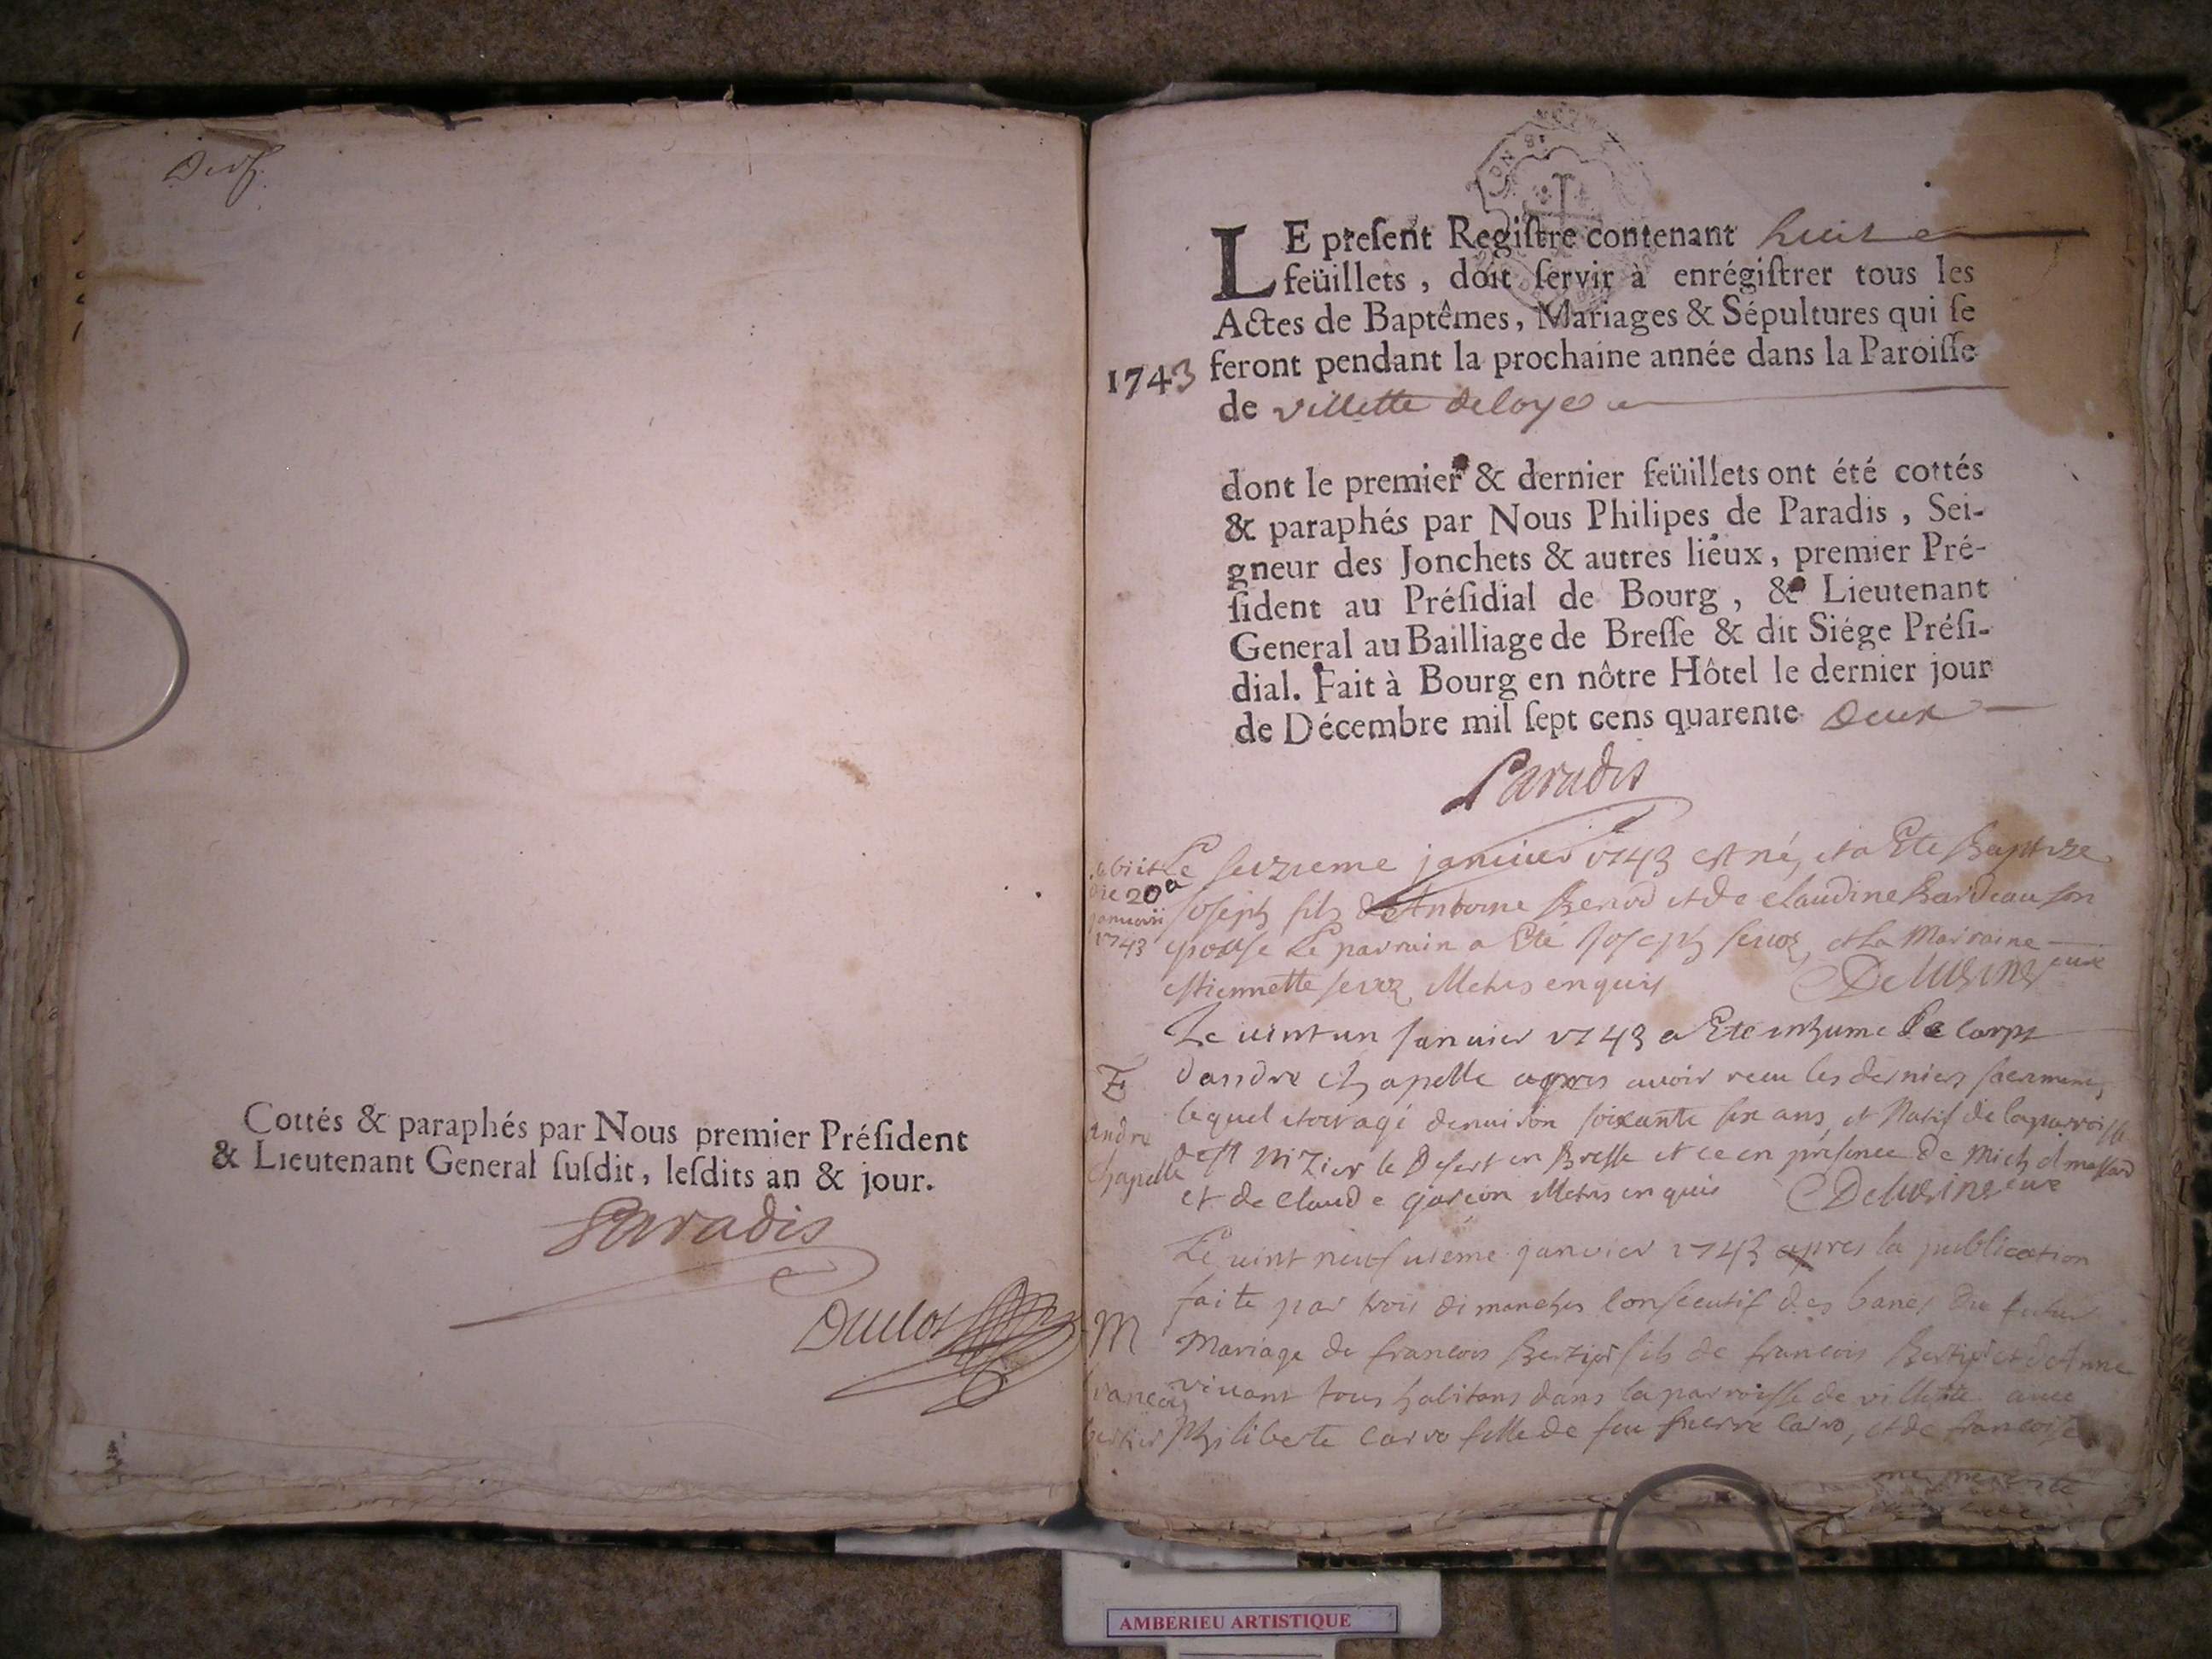 Cottés & paraphés par Nous premier Préſident
& Lieutenant General ſuſdit, leſdits an & jour.
Paradis
Duclos
LE preſent Regiſtre contenant huit
feüillets, doit ſervir à enrégiſtrer tous les
Actes de Baptêmes, Mariages & Sépultures qui ſe
1743 feront pendant la prochaine année dans la Paroiſſe
de villette deloye
dont le premier & dernier feüillets ont été cottés
& paraphés par Nous Philipes de Paradis, Sei-
gneur des Jonchets & autres lieux, premier Pré-
ſident au Préſidial de Bourg, & Lieutenant
General au Bailliage de Breſſe & dit Siége Préſi-
dial. Fait à Bourg en nôtre Hôtel le dernier jour
de Décembre mil ſept cens quarente deux
Paradis
obiit
die 20a
januarii
1743
Le seizieme janvier 1743 est né, et a Ete Baptize
joseph fils de Antoine Benod et de claudine Bardeau son
epouse Le parrain a Eté joseph, et La Marraine
estiennette Metres enquis
Le vint un janvier 1743 a Ete inhume Le corps
dandre chapelle apres avoir receu les derniers sacremens
lequel etoit agé denviron soixante six ans, et Natif de laparroisse
de st Nizier le Desert en Bresse et ce en présence de Michel massard
et de claude garcon enquis
E
andre
chapelle
Le vint neufvieme janvier 1743 apres la publication
faite par trois dimanches consecutif des bancs du futur
Mariage de francois Bertier fils de francois Bertier et de Anne
vivant tous habitans dans la parroisse de villette avec
philiberte carro fille de feu pierre carro, et de francoise
M
francois
bertier
AMBERIEU ARTISTIQUE